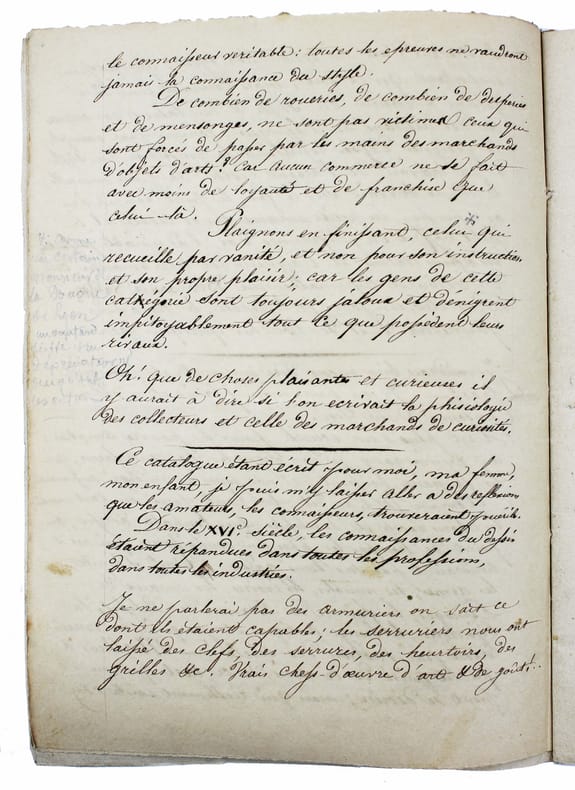 le connaisseur veritable: toutes les epreuves ne vaudront
jamais la connaissance du style.
De combien de roueries, de combien de
et de mensonges, ne sont pas victimes ceux qui
sont forcés de passer par les mains des marchands
d'objets d'arts? Car aucun commerce ne se fait
avec moins de loyauté et de franchise que
celui-là.
Plaignons en finissant, celui qui
recueille par vanité, et non pour son instruction,
et son propre plaisir; car les gens de cette
cathegorie sont toujours jaloux et dénigrent
impitoyablement tout ce que possèdent leurs
rivaux.
Oh! que de choses plaisantes et curieuses il
y aurait à dire si l'on ecrivait la phisiologie
des collecteurs et celle des marchands de curiosités.
Ce catalogue étant écrit pour moi, ma femme,
mon enfant, je puis m'y laisser aller a des reflexions
que les amateurs, les connaisseurs, trouveraient
Dans le XVIe. siècle, les connaissances du dessin
étaient répandues dans toutes les professions,
dans toutes les industries.
Je ne parlerai pas des armuriers on sait ce
dont ils étaient capables; les serruriers nous ont
laissé des clefs, des serrures, des heurtoirs, des
grilles &c. Vrais chefs-d'œuvre d'art & de goût!